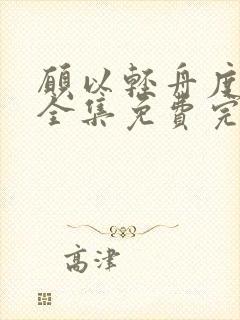 願以輕舟度
全集免費完
高津